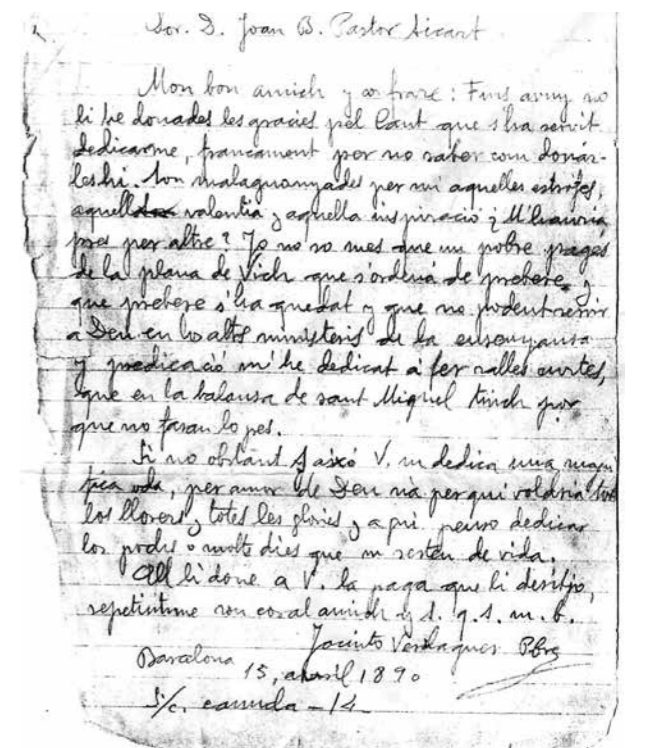 Sor. D. Joan B. Pastor Aicart
Mon bon amich y confrare: Fins avuy no
li he donades les gracies pel Cant que s'ha servit
dedicarme, francament per no saber com donár-
leshi. Son malaguanyades per mi aquelles estrofes,
aquella valentia y aquella inspiració ¿M'hauria
pres per altre? Jo no so mes que un pobre pages
de la plana de Vich que s'ordená de prebere, y
que prebere s'ha quedat y que no podent servir
a Deu en los alts ministeris de la ensenyansa
y predicació m'he dedicat á fer ralles curtes,
que en la balansa de sant Miquel tinch por
que no fasan lo pes.
Si no obstant aixó V. m dedica una magni
fica oda, per amor de Deu
los llorers y totes les glories y a qui penso dedicar
los pochs o molts dies que m resten de vida.
Ell li done a V. la paga que li desitjo,
repetintme son coral amich y s. q. s. m. b.
Jacinto Verdaguer Pbre
Barcelona
15, abril 1890
S/c. canuda - 14